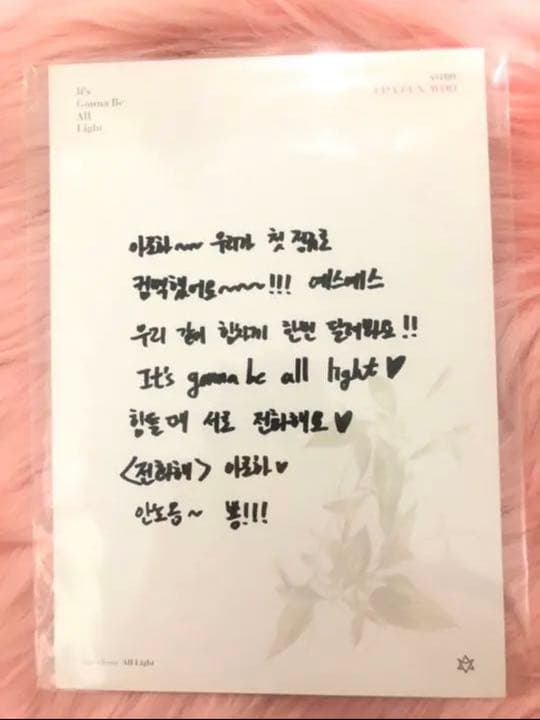 It's
Gonna Be
All
Light
ASTRO
CHA EUN-WOO
아로하~~ 우리가 첫 정규로
컴백했어요~~~!!! 예스예스
우리 같이 힘차게 한번 달려봐요!!
It's gonna be all light♥
힘들때 서로 전화해요♥
<전화해> 아로하♥
안노응~ 뿅!!!
All Light